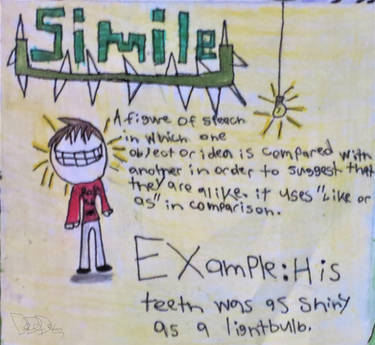 Simile
A figure of steach
in which one
object or idea is compared with
another in order to suggest that
they are alike. it uses "Like or
as" in comparison.
EXample: His
teeth was as shiny
as a lightbulb.